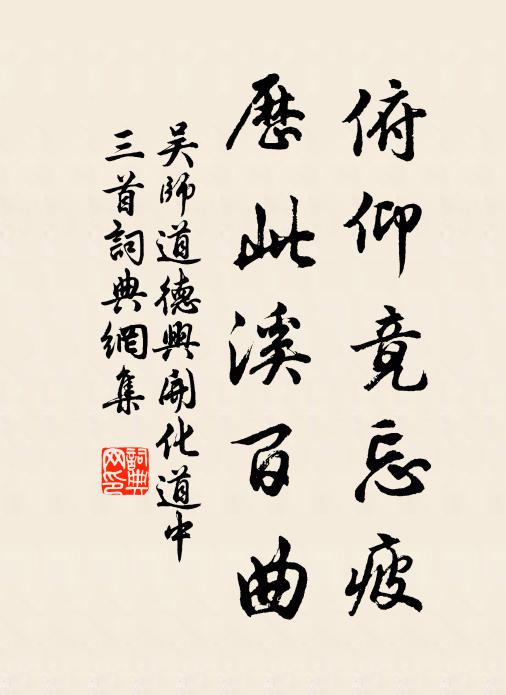 俯仰竟忘疲
歷此溪百曲
吳師道德興開化道中
三首詞典網集
詞典
网印